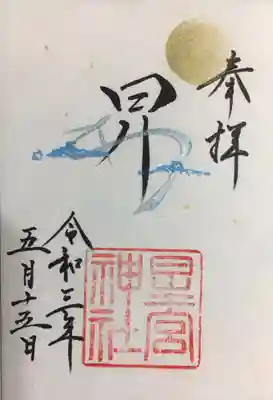 奉拝
令和三年
五月十五日
星宮
神社